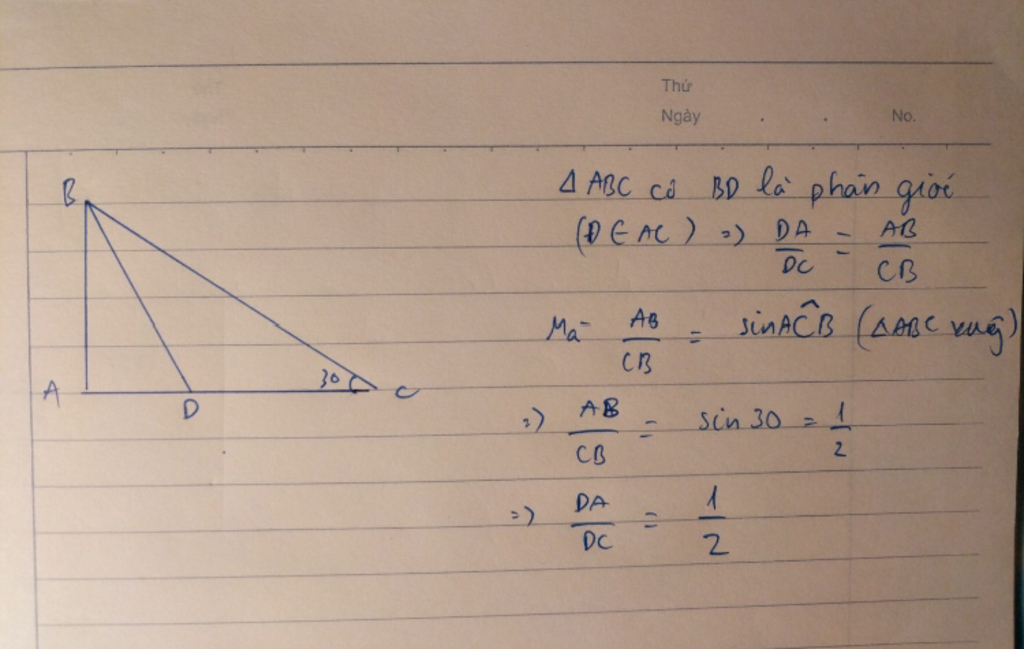 Thứ
Ngày . . No.
B
A
D
30
C
Δ ABC có BD là phân giác
(D ∈ AC) => DA/DC = AB/CB
Mà AB/CB = sin AĈB (ΔABC vuông)
=> AB/CB = sin 30 = 1/2
=> DA/DC = 1/2